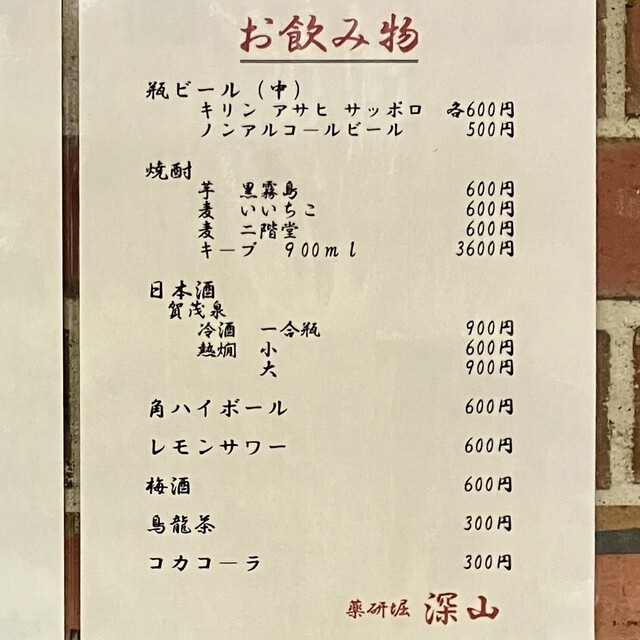 お飲み物
瓶ビール（中）
キリン アサヒ サッポロ 各600円
ノンアルコールビール 500円
焼酎
芋 黒霧島 600円
麦 いいちこ 600円
麦 二階堂 600円
キープ 900ml 3600円
日本酒
賀茂泉
冷酒 一合瓶 900円
熱燗 小 600円
大 900円
角ハイボール 600円
レモンサワー 600円
梅酒 600円
烏龍茶 300円
コカコーラ 300円
薬研堀 深山